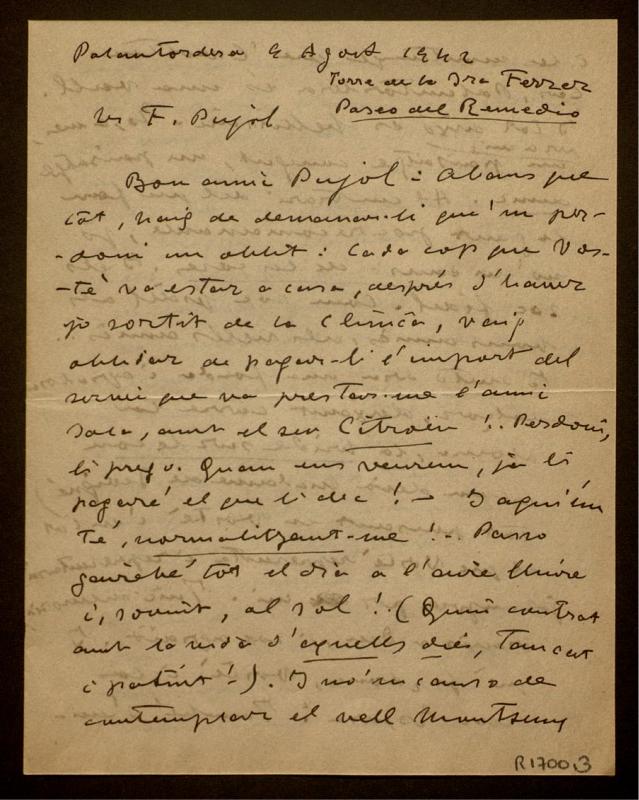 Palautordera 9 Agost 1942
Torre de la Sra Ferrer
Paseo del Remedio
Sr F. Pujol
Bon amic Pujol: Abans que
tot, haig de demanar-li que'm per-
-doni un oblit: Cada cop que Vos-
-tè va estar a casa, després d'haver
jo sortit de la Clínica, vaig
oblidar de pagar-li l'import del
servei que va prestar-me l'amic
Sala, amb el seu Citroën!. Perdoni,
li prego. Quan ens veurem, ja li
pagaré el que li dec! - I aquí'm
té, normalitzant-me!-. Passo
gairebé tot el dia a l'aire lliure
i, sovint, al sol! (Quin contrast
amb la vida d'aquells dies, tancat
i patint!-). I no'm canso de
contemplar el vell Montseny
R1700.3